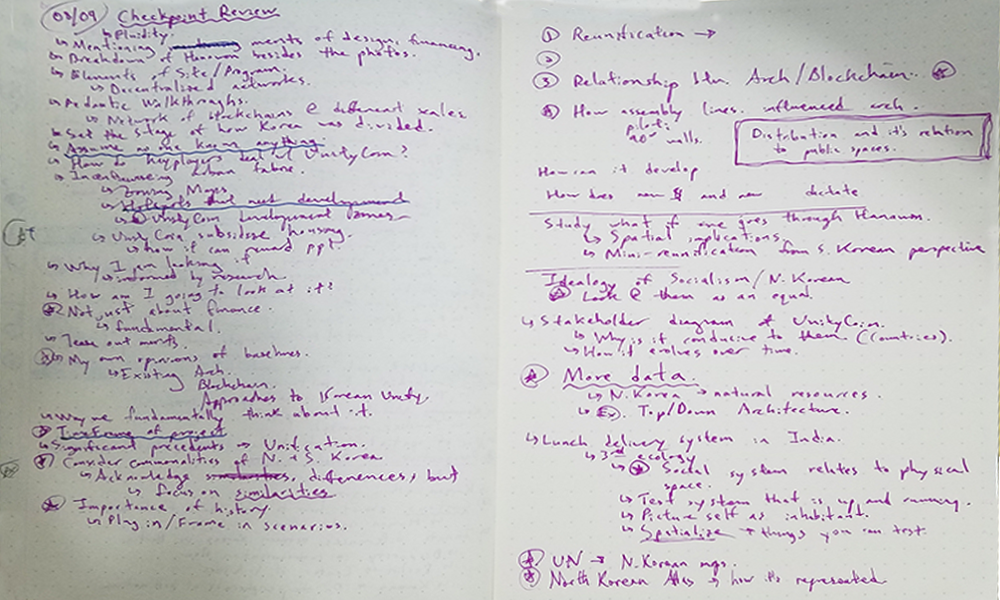 03/09 Checkpoint Review
↳ Fluidity.
↳ Mentioning merits of design, financing.
↳ Breakdown of Hanawon besides the photos.
↳ Elements of Site/Program
↳ Decentralized networks.
↳ Pedantic Walkthroughs.
↳ Network of blockchains @ different scales
↳ Set the stage of how Korea was divided.
↳ Assume no one knows anything
↳ How do key players deal w/ UnityCoin?
↳ Incentivizing urban fabric.
↳ Zoning Maps
↳ but not development
↳ UnityCoin Development Zones
↳ Unity Coin subsidise housing.
↳ how it can reward ppl.
↳ Why I am looking if
↳ informed by research.
↳ How am I going to look at it?
Not just about finance.
↳ fundamental.
↳ Tease out merits.
↳ My own opinions of baselines.
↳ Existing Arch.
Blockchain.
Approaches to Korean Unity
↳ Why we fundamentally think about it.
Timeframe of project
↳ Significant precedents → Unification.
Consider commonalities of N. + S. Korea
↳ Acknowledge differences, but
↳ focus on similarities
Importance of history
↳ Plug in/Frame in scenarios.
① Reunification →
②
③ Relationship btw. Arch/Blockchain.
④ How assembly lines influenced arch.
Pilot:
90° walls.
Distribution and it's relation
to public spaces.
How can it develop
How does new $ and new dictate
Study what if one goes through Hanawon.
↳ Spatial implications.
↳ Mini-reunification from S. Korean perspective
Idealogy of Socialism/N. Korean
Look @ them as an equal.
↳ Stakeholder diagram of UnityCoin.
↳ Why is it conducive to them (Countries).
↳ How it evolves over time.
More data.
↳ N. Korea → natural resources.
↳ Ex. Top/Down Architecture.
↳ Lunch delivery system in India.
↳ 3rd ecology
↳ Social system relates to physical
space.
↳ Test system that is up and running.
↳ Picture self as inhabitant.
↳ Spatialize → things you can test.
UN → N. Korean maps.
North Korean Atlas → how it's represented